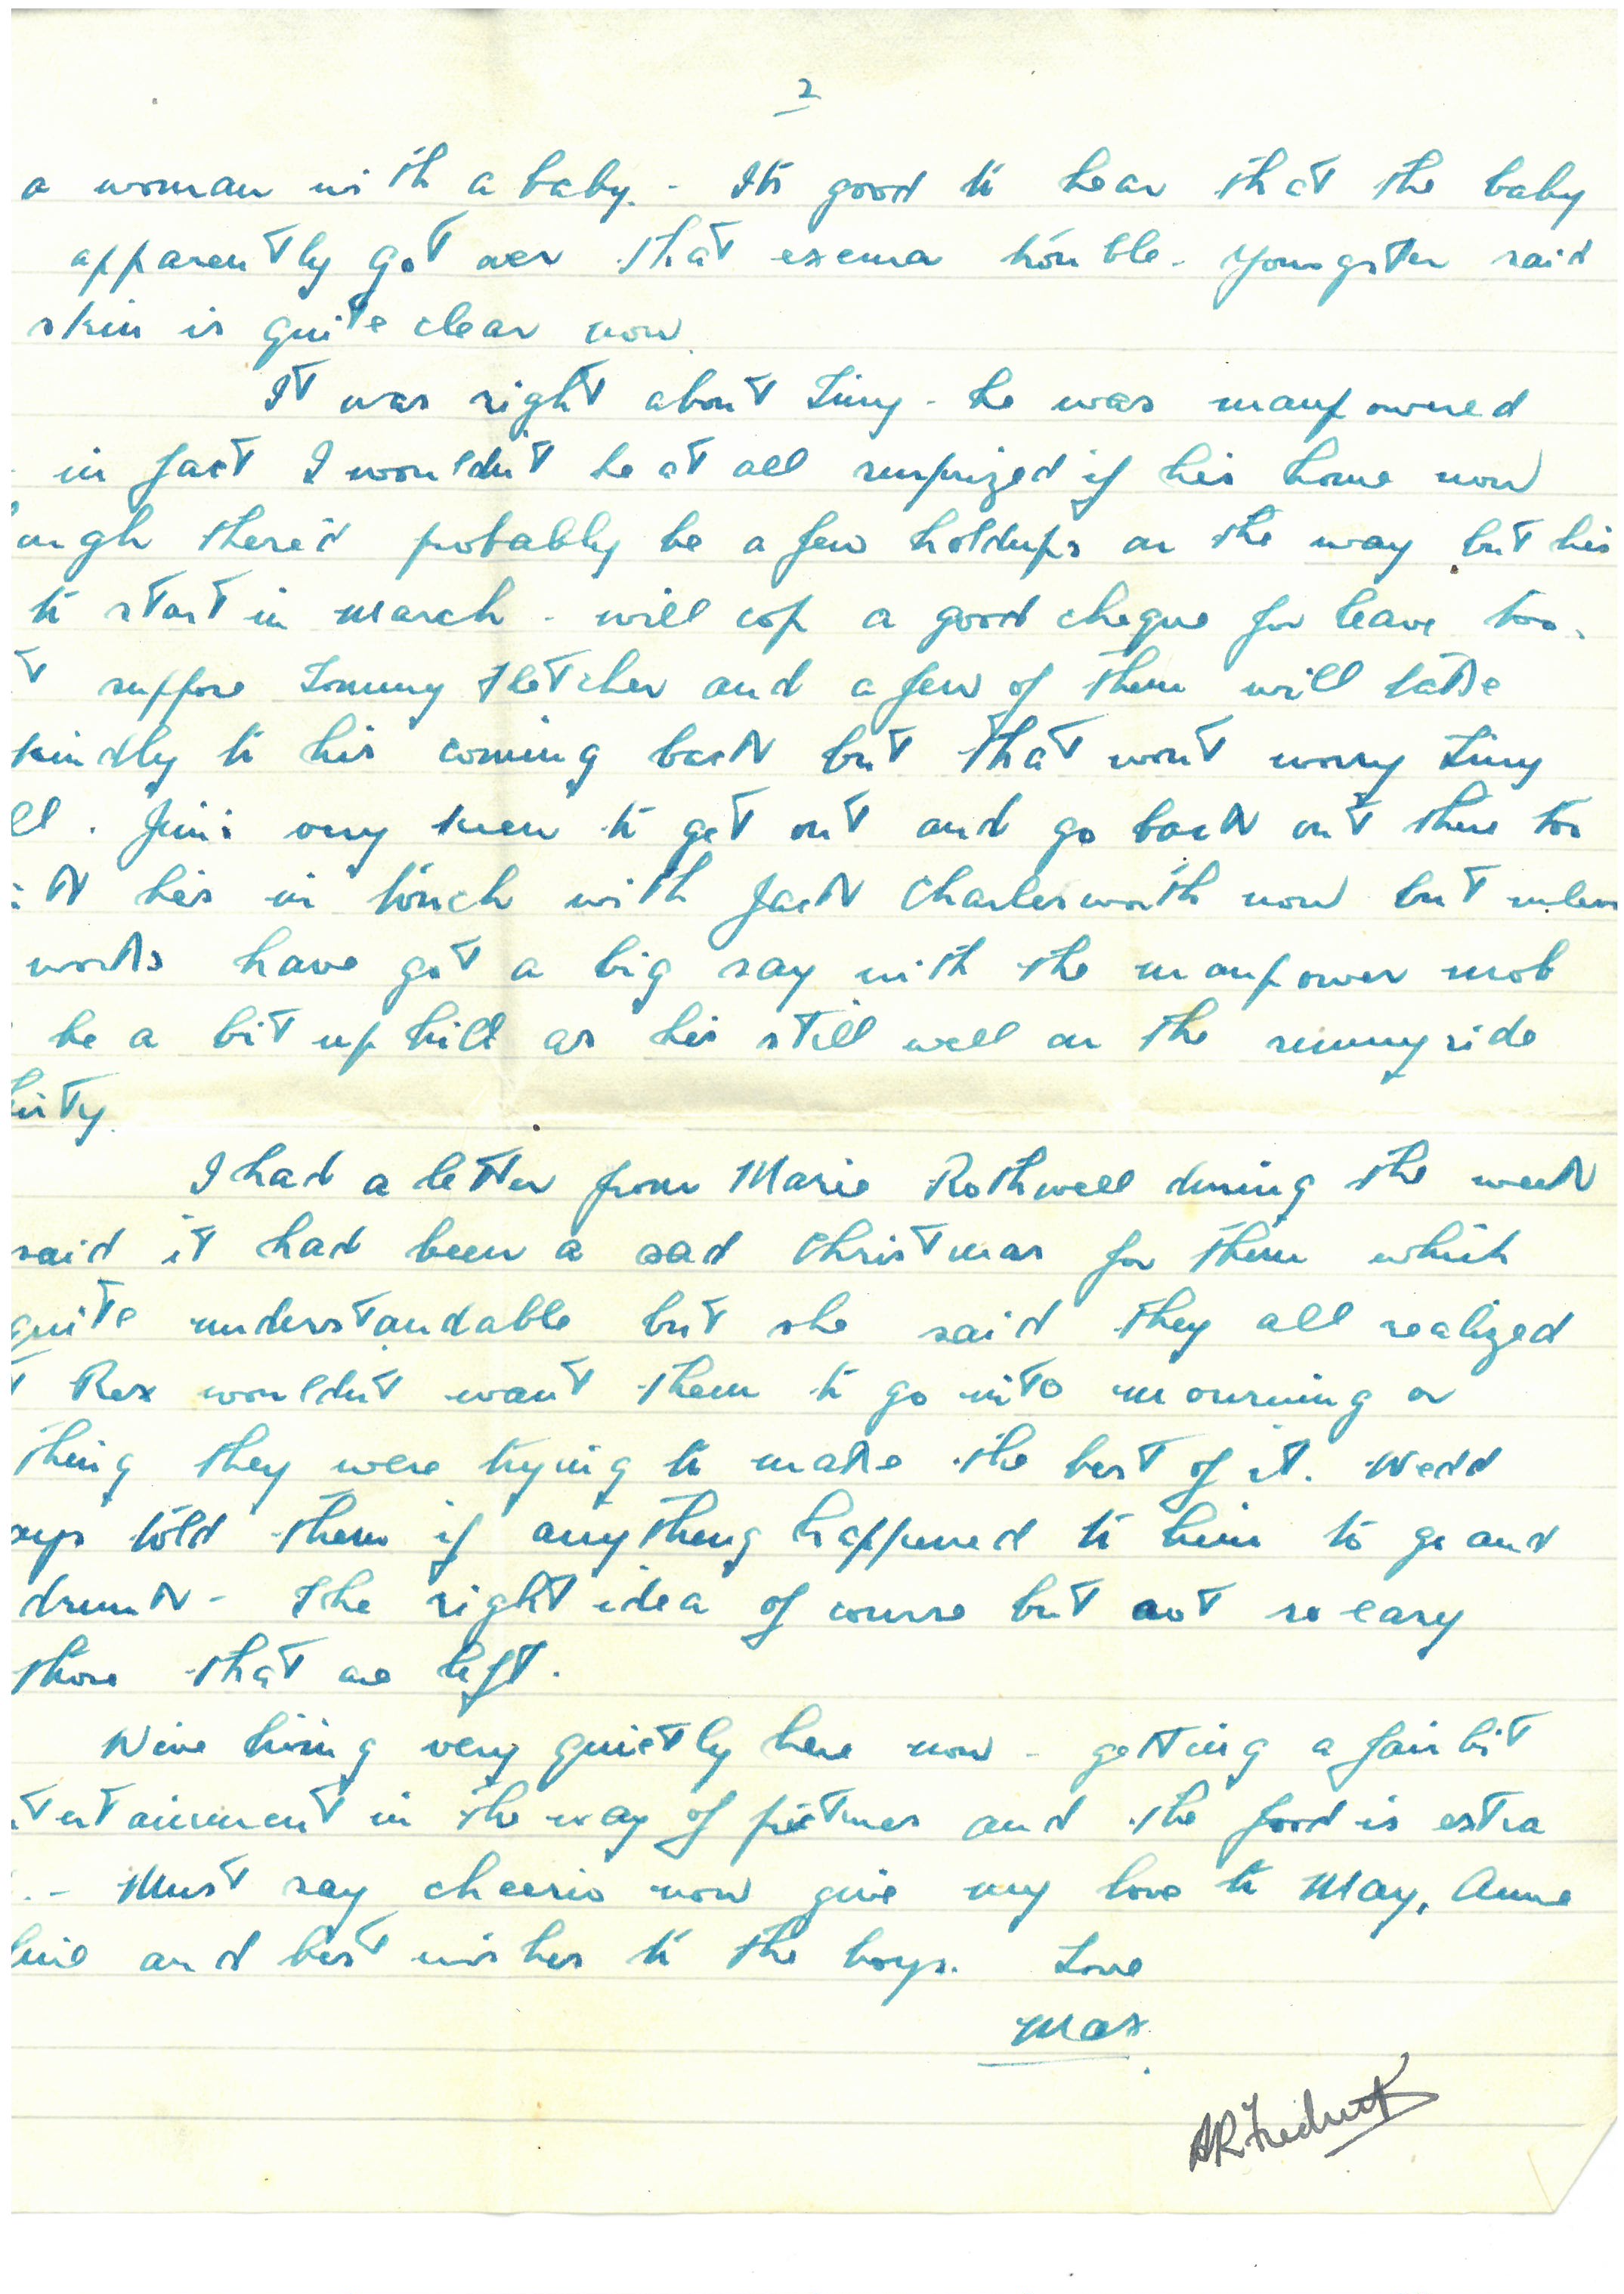 2
a woman with a baby. - Its good to hear that the baby
apparently got over that exema trouble - youngster said
skin is quite clear now
It was right about Tiny - he was manpowered
- in fact I wouldn't be at all surprized if his home now
ough there'd probably be a few holdups on the way but his
to start in March - will cop a good cheque for leave too.
t suppose Tommy Fletcher and a few of them will take
kindly to his coming back but that won't worry Tiny
ll. Jim's very keen to get out and go back out there too
k he's in touch with Jack Charlesworth now but unless
works have got a big say with the manpower mob
be a bit up hill as his still well on the sunnyside
hirty.
I had a letter from Marie Rothwell during the week
said it had been a sad Christmas for them which
quite understandable but she said they all realized
t Rex wouldn't want them to go into mourning or
thing they were trying to make the best of it. Wedd
ays told them if anything happened to him to go and
drunk - the right idea of course but not so easy
those that are left.
We're living very quietly here now - getting a fair bit
tertainment in the way of pictures and the food is extra
. - Must say cheerio now give my love to May, Anne
and best wishes to the boys. Love
Max.